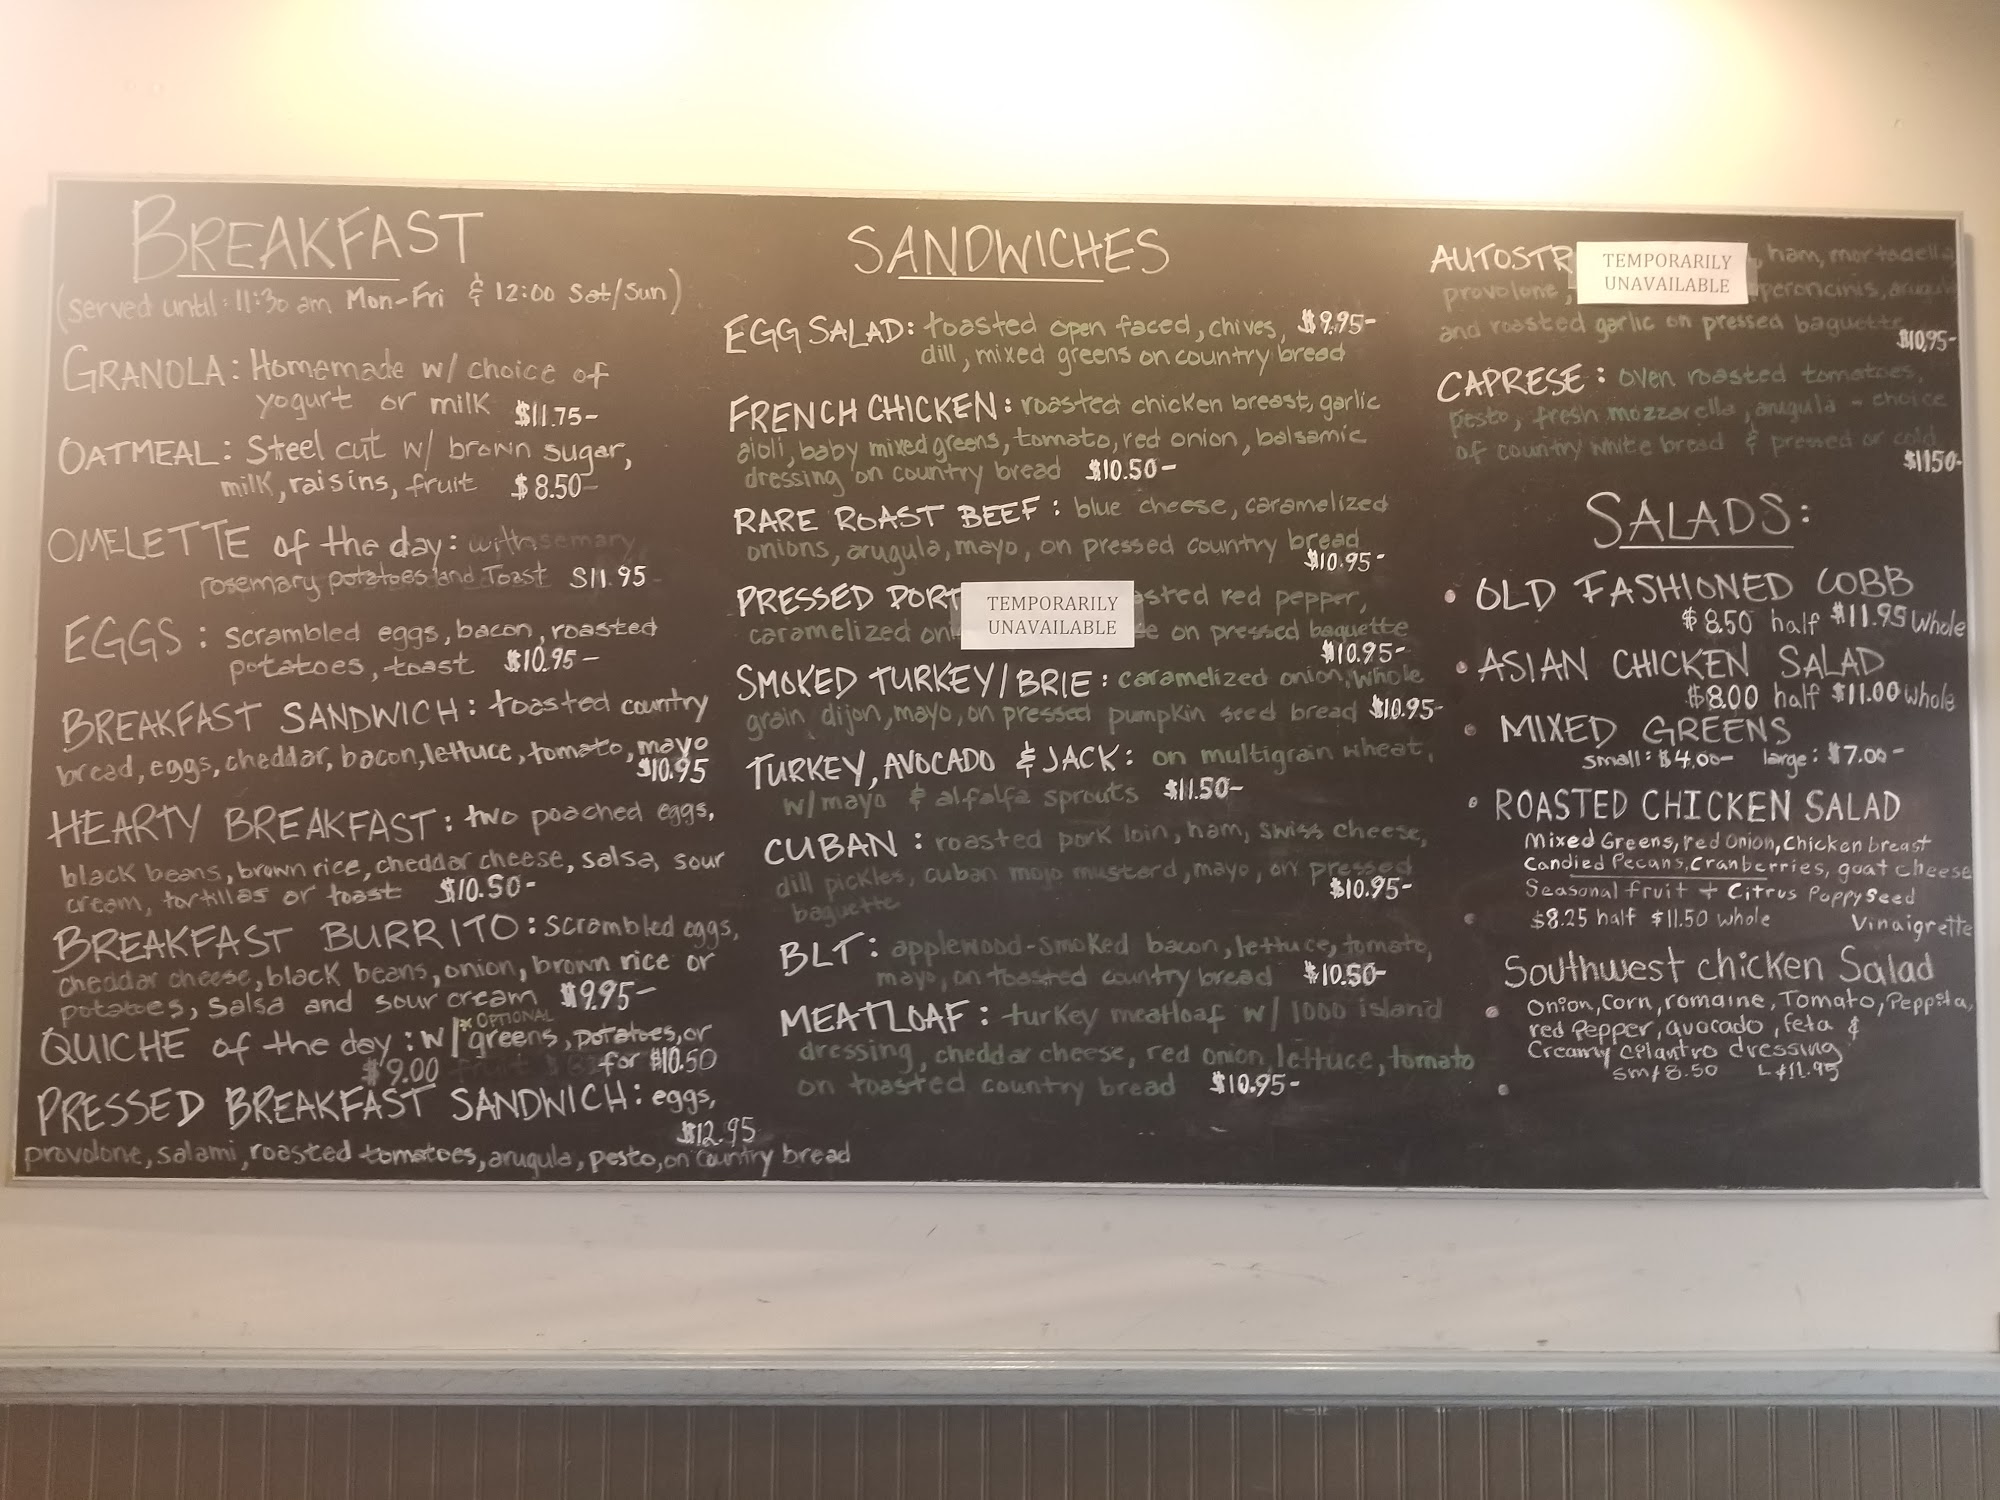 BREAKFAST
(served until: 11:30 am Mon-Fri & 12:00 Sat/Sun)
GRANOLA: Homemade w/ choice of
yogurt or milk $11.75-
OATMEAL: Steel cut w/ brown sugar,
milk, raisins, fruit $8.50-
OMELETTE of the day: with
rosemary potatoes and Toast $11.95
EGGS: scrambled eggs, bacon, roasted
potatoes, toast $10.95-
BREAKFAST SANDWICH: toasted country
bread, eggs, cheddar, bacon, lettuce, tomato, mayo
$10.95
HEARTY BREAKFAST: two poached eggs,
black beans, brown rice, cheddar cheese, salsa, sour
cream, tortillas or toast $10.50-
BREAKFAST BURRITO: scrambled eggs,
cheddar cheese, black beans, onion, brown rice or
potatoes, salsa and sour cream $9.95-
* OPTIONAL
QUICHE of the day: w/ greens, potatoes, or
$9.00 fruit for $10.50
PRESSED BREAKFAST SANDWICH: eggs,
$12.95
provolone, salami, roasted tomatoes, arugula, pesto, on country bread
SANDWICHES
EGG SALAD: toasted open faced, chives, $9.95-
dill, mixed greens on country bread
FRENCH CHICKEN: roasted chicken breast, garlic
aioli, baby mixed greens, tomato, red onion, balsamic
dressing on country bread $10.50-
RARE ROAST BEEF: blue cheese, caramelized
onions, arugula, mayo, on pressed country bread
$10.95-
PRESSED PORT TEMPORARILY UNAVAILABLE sted red pepper,
caramelized on e on pressed baguette
$10.95-
SMOKED TURKEY/BRIE: caramelized onion, whole
grain dijon, mayo, on pressed pumpkin seed bread $10.95-
TURKEY, AVOCADO & JACK: on multigrain wheat,
w/ mayo & alfalfa sprouts $11.50-
CUBAN: roasted pork loin, ham, swiss cheese,
dill pickles, cuban mojo mustard, mayo, on pressed
baguette $10.95-
BLT: applewood-smoked bacon, lettuce, tomato,
mayo, on toasted country bread $10.50-
MEATLOAF: turkey meatloaf w/ 1000 island
dressing, cheddar cheese, red onion, lettuce, tomato
on toasted country bread $10.95-
AUTOSTR TEMPORARILY UNAVAILABLE , ham, mortadella,
provolone, peroncinis, arugula
and roasted garlic on pressed baguette
$10.95-
CAPRESE: oven roasted tomatoes,
pesto, fresh mozzarella, arugula - choice
of country white bread & pressed or cold
$1150-
SALADS:
• OLD FASHIONED COBB
$8.50 half $11.95 whole
• ASIAN CHICKEN SALAD
$8.00 half $11.00 whole
• MIXED GREENS
small: $4.00- large: $7.00-
• ROASTED CHICKEN SALAD
Mixed Greens, red onion, Chicken breast
Candied Pecans, Cranberries, goat cheese
Seasonal fruit + Citrus Poppy Seed
$8.25 half $11.50 whole Vinaigrette
Southwest chicken Salad
Onion, Corn, romaine, Tomato, Peppita,
red Pepper, avocado, feta &
Creamy cilantro dressing
sm $8.50 L $11.95